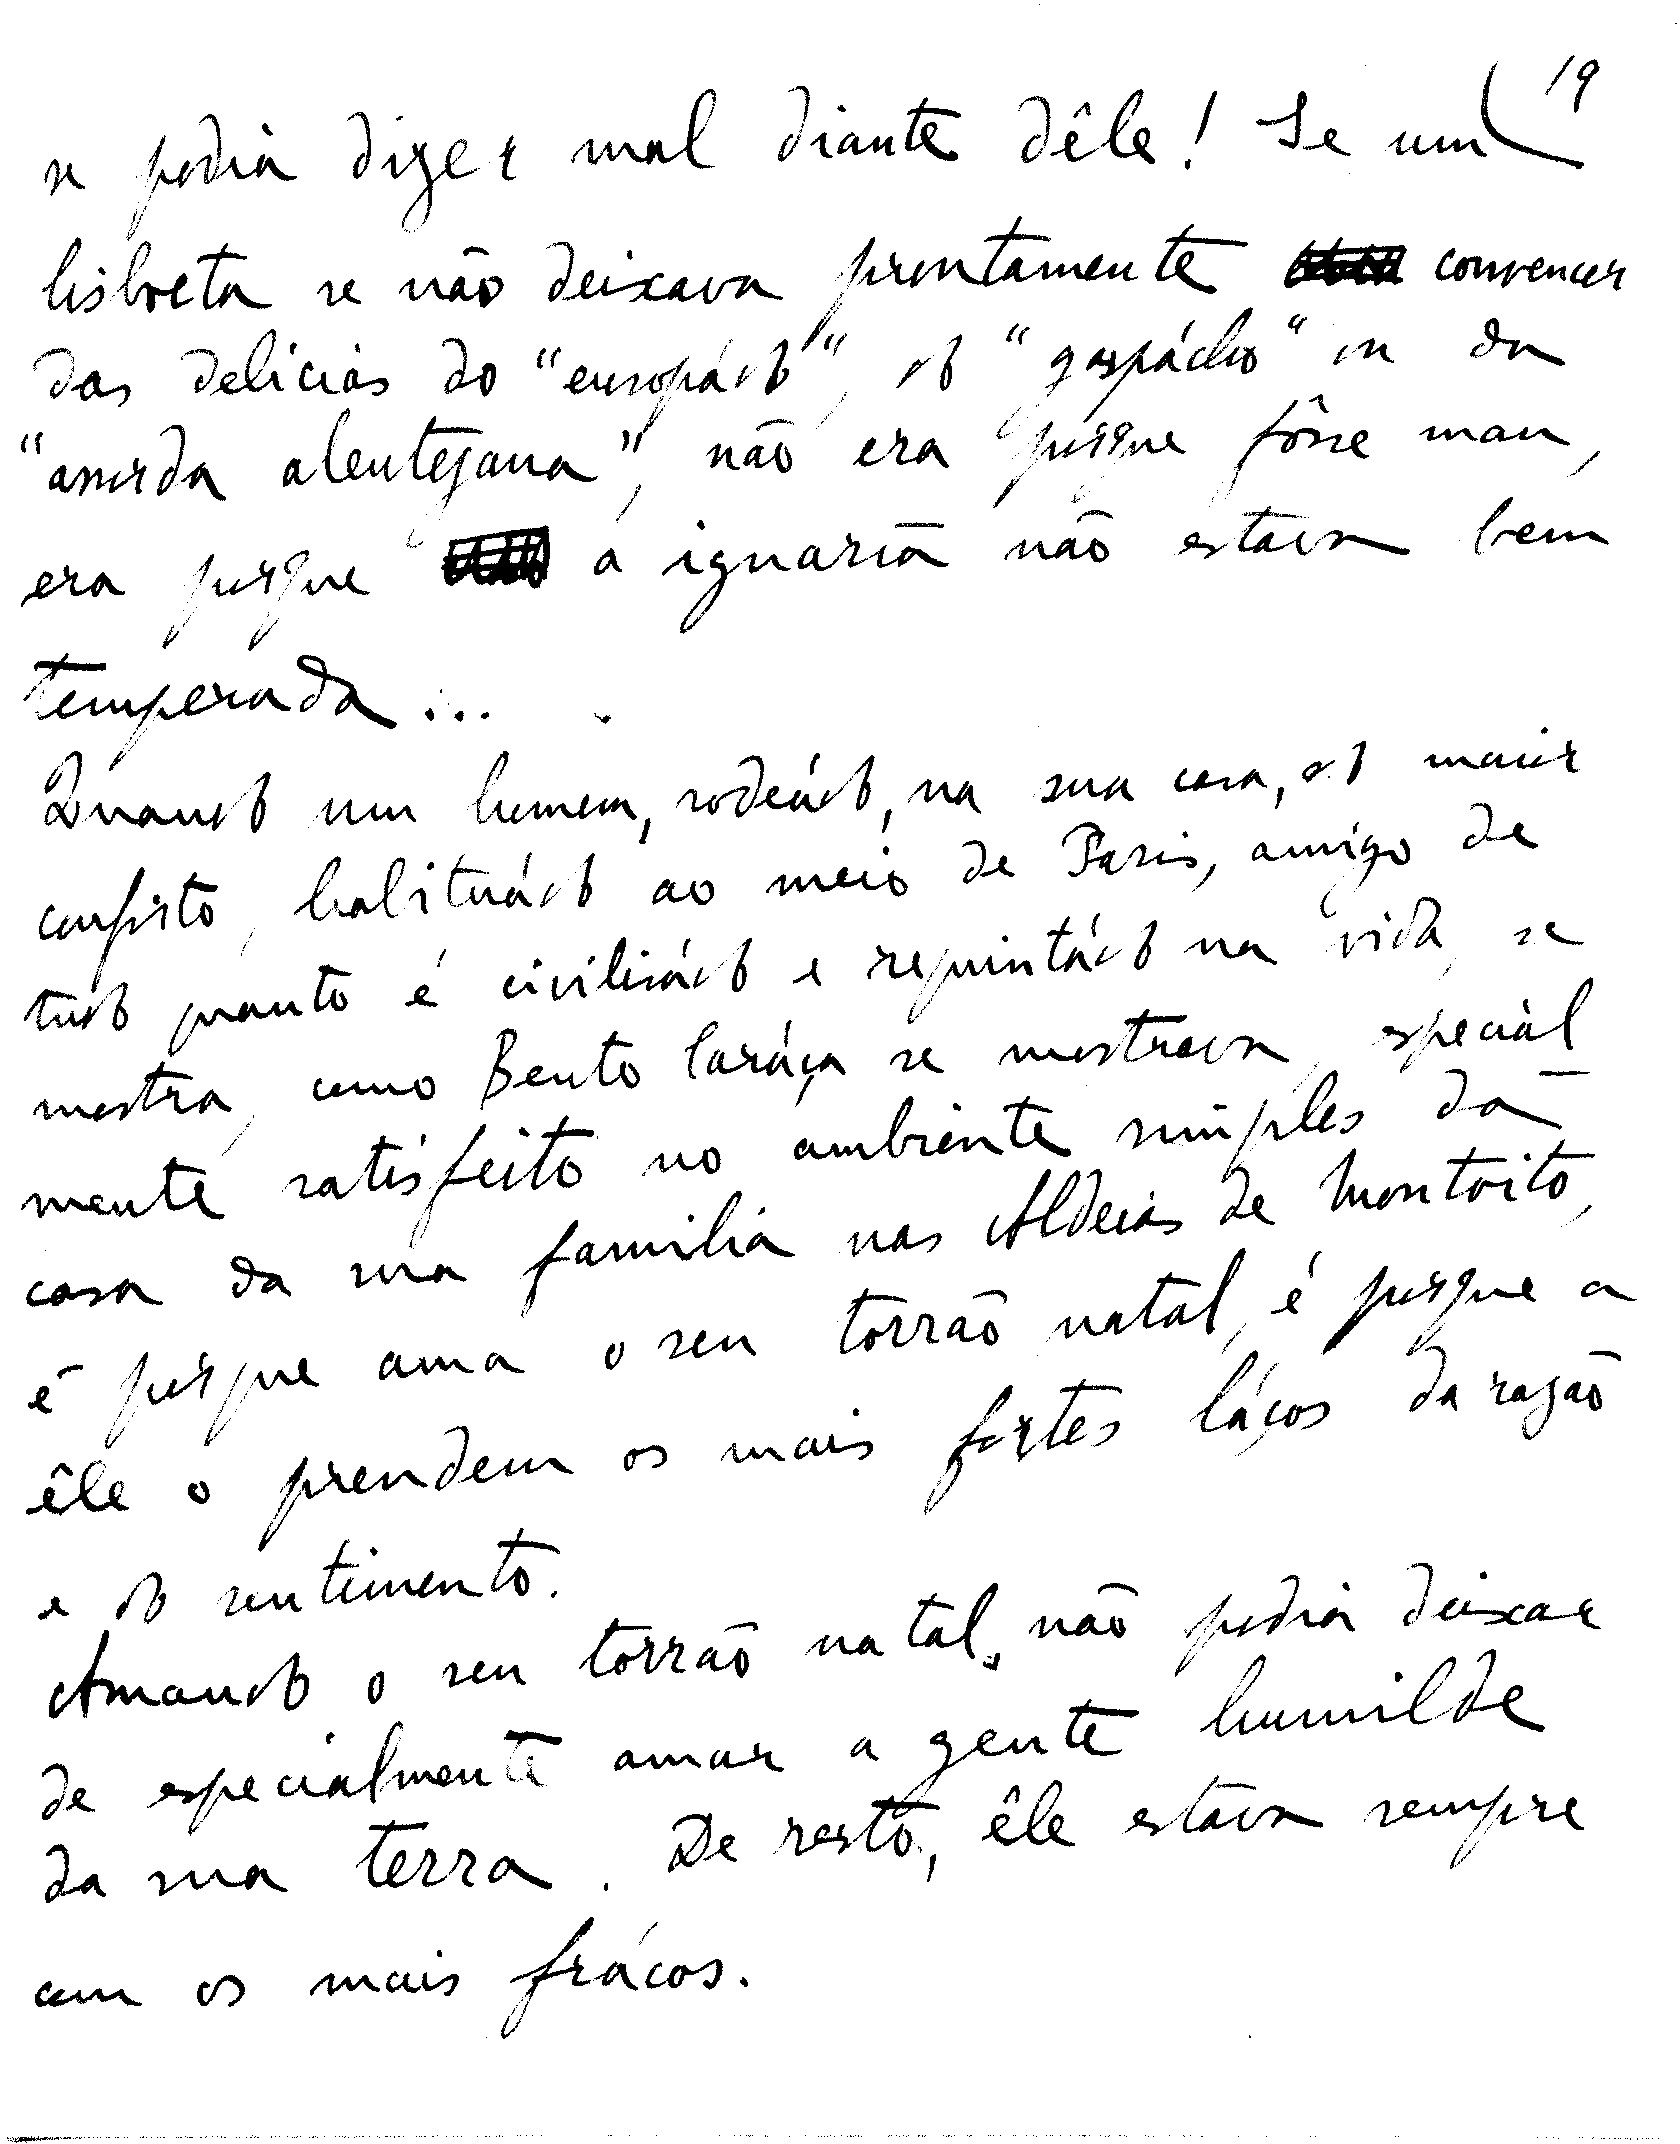 19
se podia dizer mal diante dêle! Se um
lisboeta se não deixava prontamente convencer
das delicias do "europádo", do "gaspácho" ou da
"assorda alentejana", não era porque fôsse mau,
era porque a iguaria não estava bem
temperada...
Quando um homem, rodeádo, na sua casa, do maior
conforto, habituádo ao meio de Paris, amigo de
tudo quanto é civilisádo e requintádo na vida, se
mostra, como Bento Caráça se mostrava, especial
mente satisfeito no ambiente simples da
casa da sua familia nas Aldeias de Montoito,
é porque ama o seu torrão natal, é porque a
êle o prendem os mais fortes láços da razão
e do sentimento.
Amando o seu torrão natal, não podia deixar
de especialmente amar a gente humilde
da sua terra. De resto, êle estava sempre
com os mais frácos.